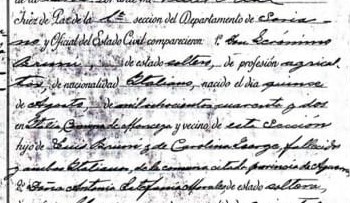 Juez de Paz de la 4ª seccion del Departamento de Soria
no y Oficial del Estado Civil comparecieron 1º Don Gerónimo
Bruni de estado soltero, de profesión agricul
tor, de nacionalidad Italiano, nacido el día quince
de Agosto, de mil ochocientos cuarenta y dos
en Italia Comuna de y vecino de esta Sección
hijo de Luis Bruni y de Carolina fallecidos
y ambos Italianos, de la comuna citada provincia de
2º Doña Antonia Estefanía Morales de estado soltera,